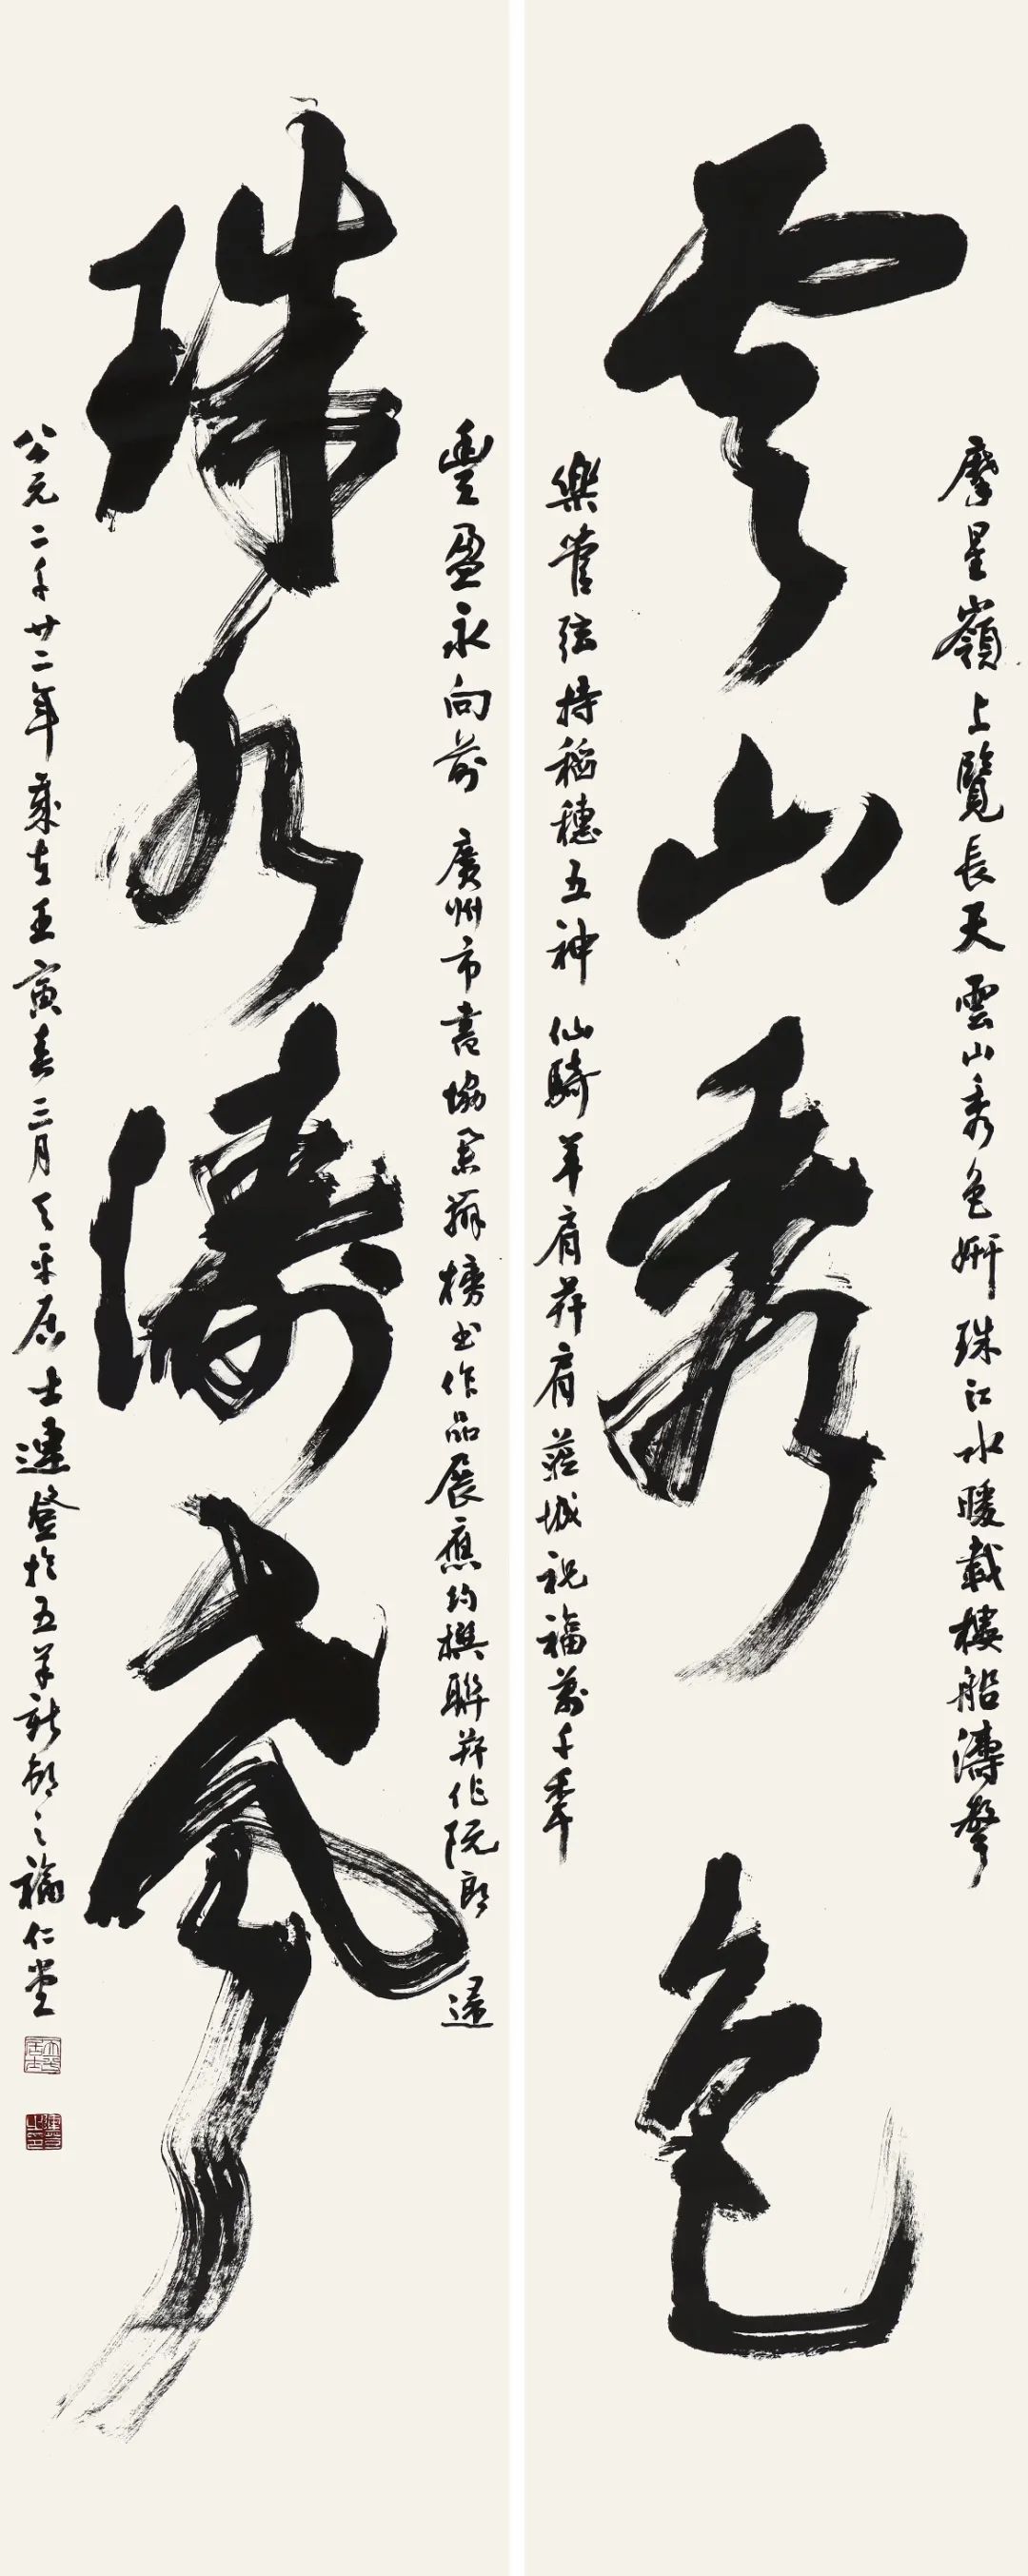 摩星嶺上覽長天雲山秀色妍珠江水暖載樓船濤聲
云山秀色
樂管弦持稻穗五神仙騎羊肩并肩城祝福萬千秊
豐盈永向前 廣州市書協辦榜書作品展應約撰聯并作阮郎歸
珠水濤聲
公元二千廿二年歲在壬寅春三月天平居士連登於五羊新邨之福仁堂